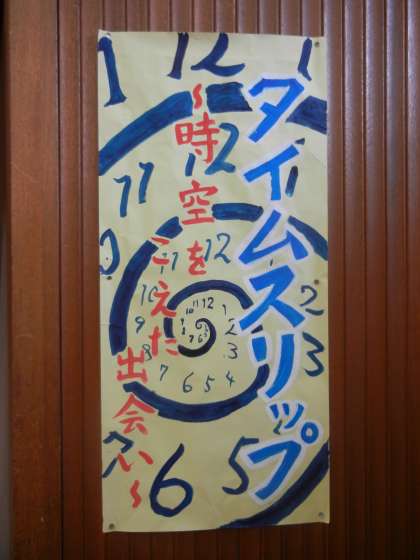 タイムスリップ
～時空を
こえた
出会い～
1 12 1
12
11
1
0
12
11
10
9
8
7
6
5
4
3
2
1
2
3
5
6
7
12
1
2
3
4
5
6
7
8
9
10
11